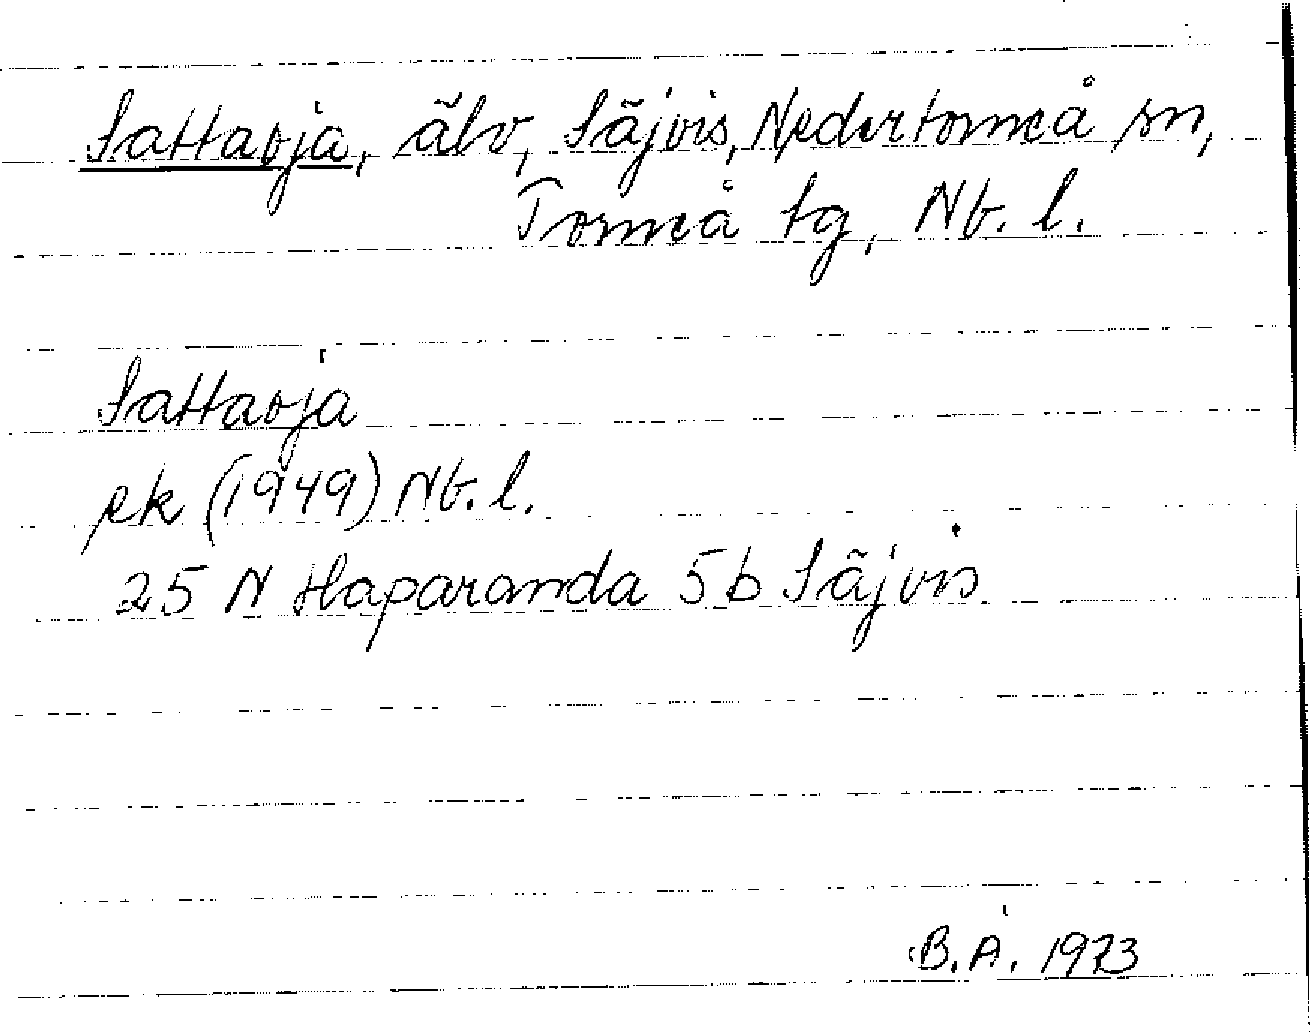 Sattaoja, älv, Säjvis, Nedertorneå sn,
Torneå tg, Nb. l.
Sattaoja
ek (1949) Nb. l.
25 N Haparanda 5b Säjvis
B.Å. 1973